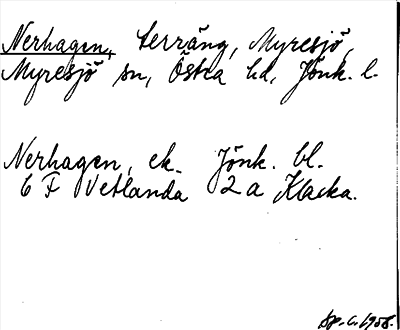 Nerhagen, terräng, Myresjö,
Myresjö sn, Östra hd, Jönk. l.
Nerhagen, ek. Jönk. bl.
6 F Vetlanda 2 a Klacka.
1958.